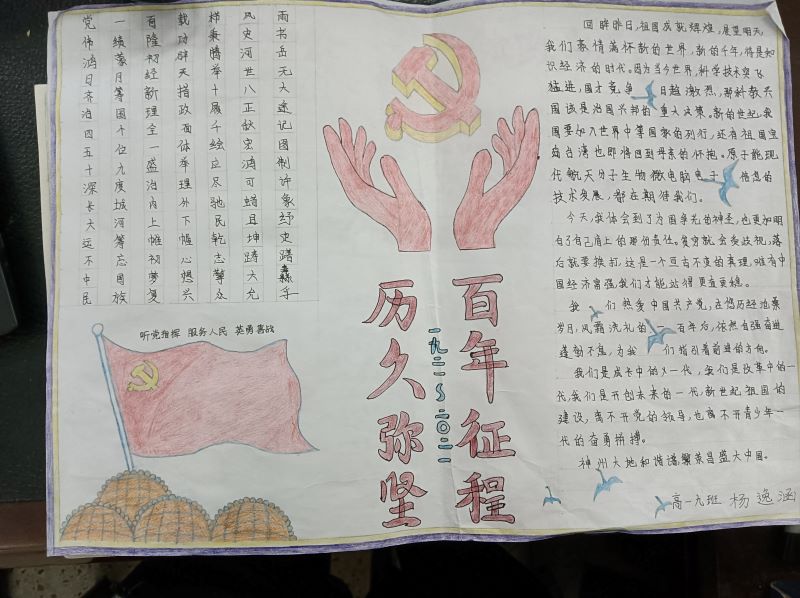 党一百载梯风雨
伟绩隆功秉史书
鸿蒙初辟腾河岳
日月经天举世无
齐等新指十八大
治国理政履正途
四个全面千猷记
五位一体绘宏图
十九盛举立鸿制
深度治理尽可许
长城内外驰蜡象
大河上下民且纾
远筹帷幅乾坤史
不忘初心志踌踏
中国梦想擎大矗
民族复兴众允乎
听党指挥 服务人民 英勇善战
百年征程
一九二一~二〇二一
历久弥坚
回眸昨日,祖国成就辉煌,展望明天,
我们豪情满怀新的世界,新的千年,将是知
识经济的时代。因为当今世界,科学技术突飞
猛进,国才竞争日趋激烈,那种教兴
国该是治国兴邦的重大决策。新的世纪,我
国要加入世界中等国家的列行,还有祖国宝
岛台湾也即将回到母亲的怀抱。原子能,现
代航天分子生物微电脑电子信息的
技术发展,都在期待我们。
今天,我体会到了为国争光的神圣,也更加明
白了自己肩上的那份责任。贫穷就会受歧视,落
后就要挨打,这是一个亘古不变的真理,唯有中
国经济富强我们才能站得更直更稳。
我们热爱中国共产党,在您历经沧桑
岁月,风霜洗礼的百年后,依然自强奋进
蓬勃不焦,为我们指引着前进的方向。
我们是成长中的一代,我们是改革中的一
代,我们是开创未来的一代,新世纪祖国的
建设,离不开党的领导,也离不开青少年一
代的奋勇拼搏。
神州大地和谐谱繁荣昌盛大中国。
高一九班 杨逸涵